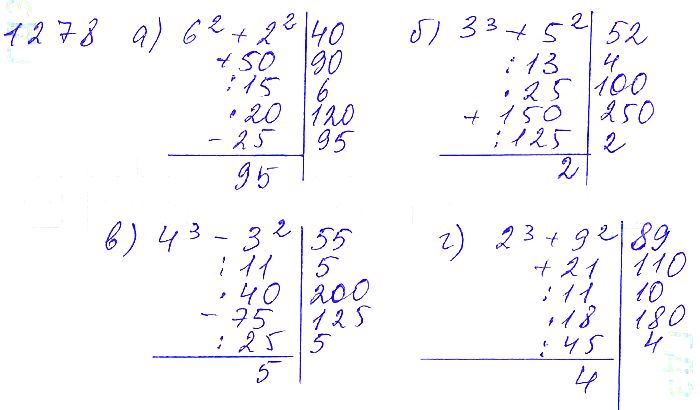 1278 а) 6² + 2² | 40
+50 | 90
:15 | 6
·20 | 120
- 25 | 95
95
б) 3³ + 5² | 52
:13 | 4
·25 | 100
+ 150 | 250
:125 | 2
2
в) 4³ - 3² | 55
:11 | 5
·40 | 200
- 75 | 125
:25 | 5
5
г) 2³ + 9² | 89
+21 | 110
:11 | 10
·18 | 180
:45 | 4
4